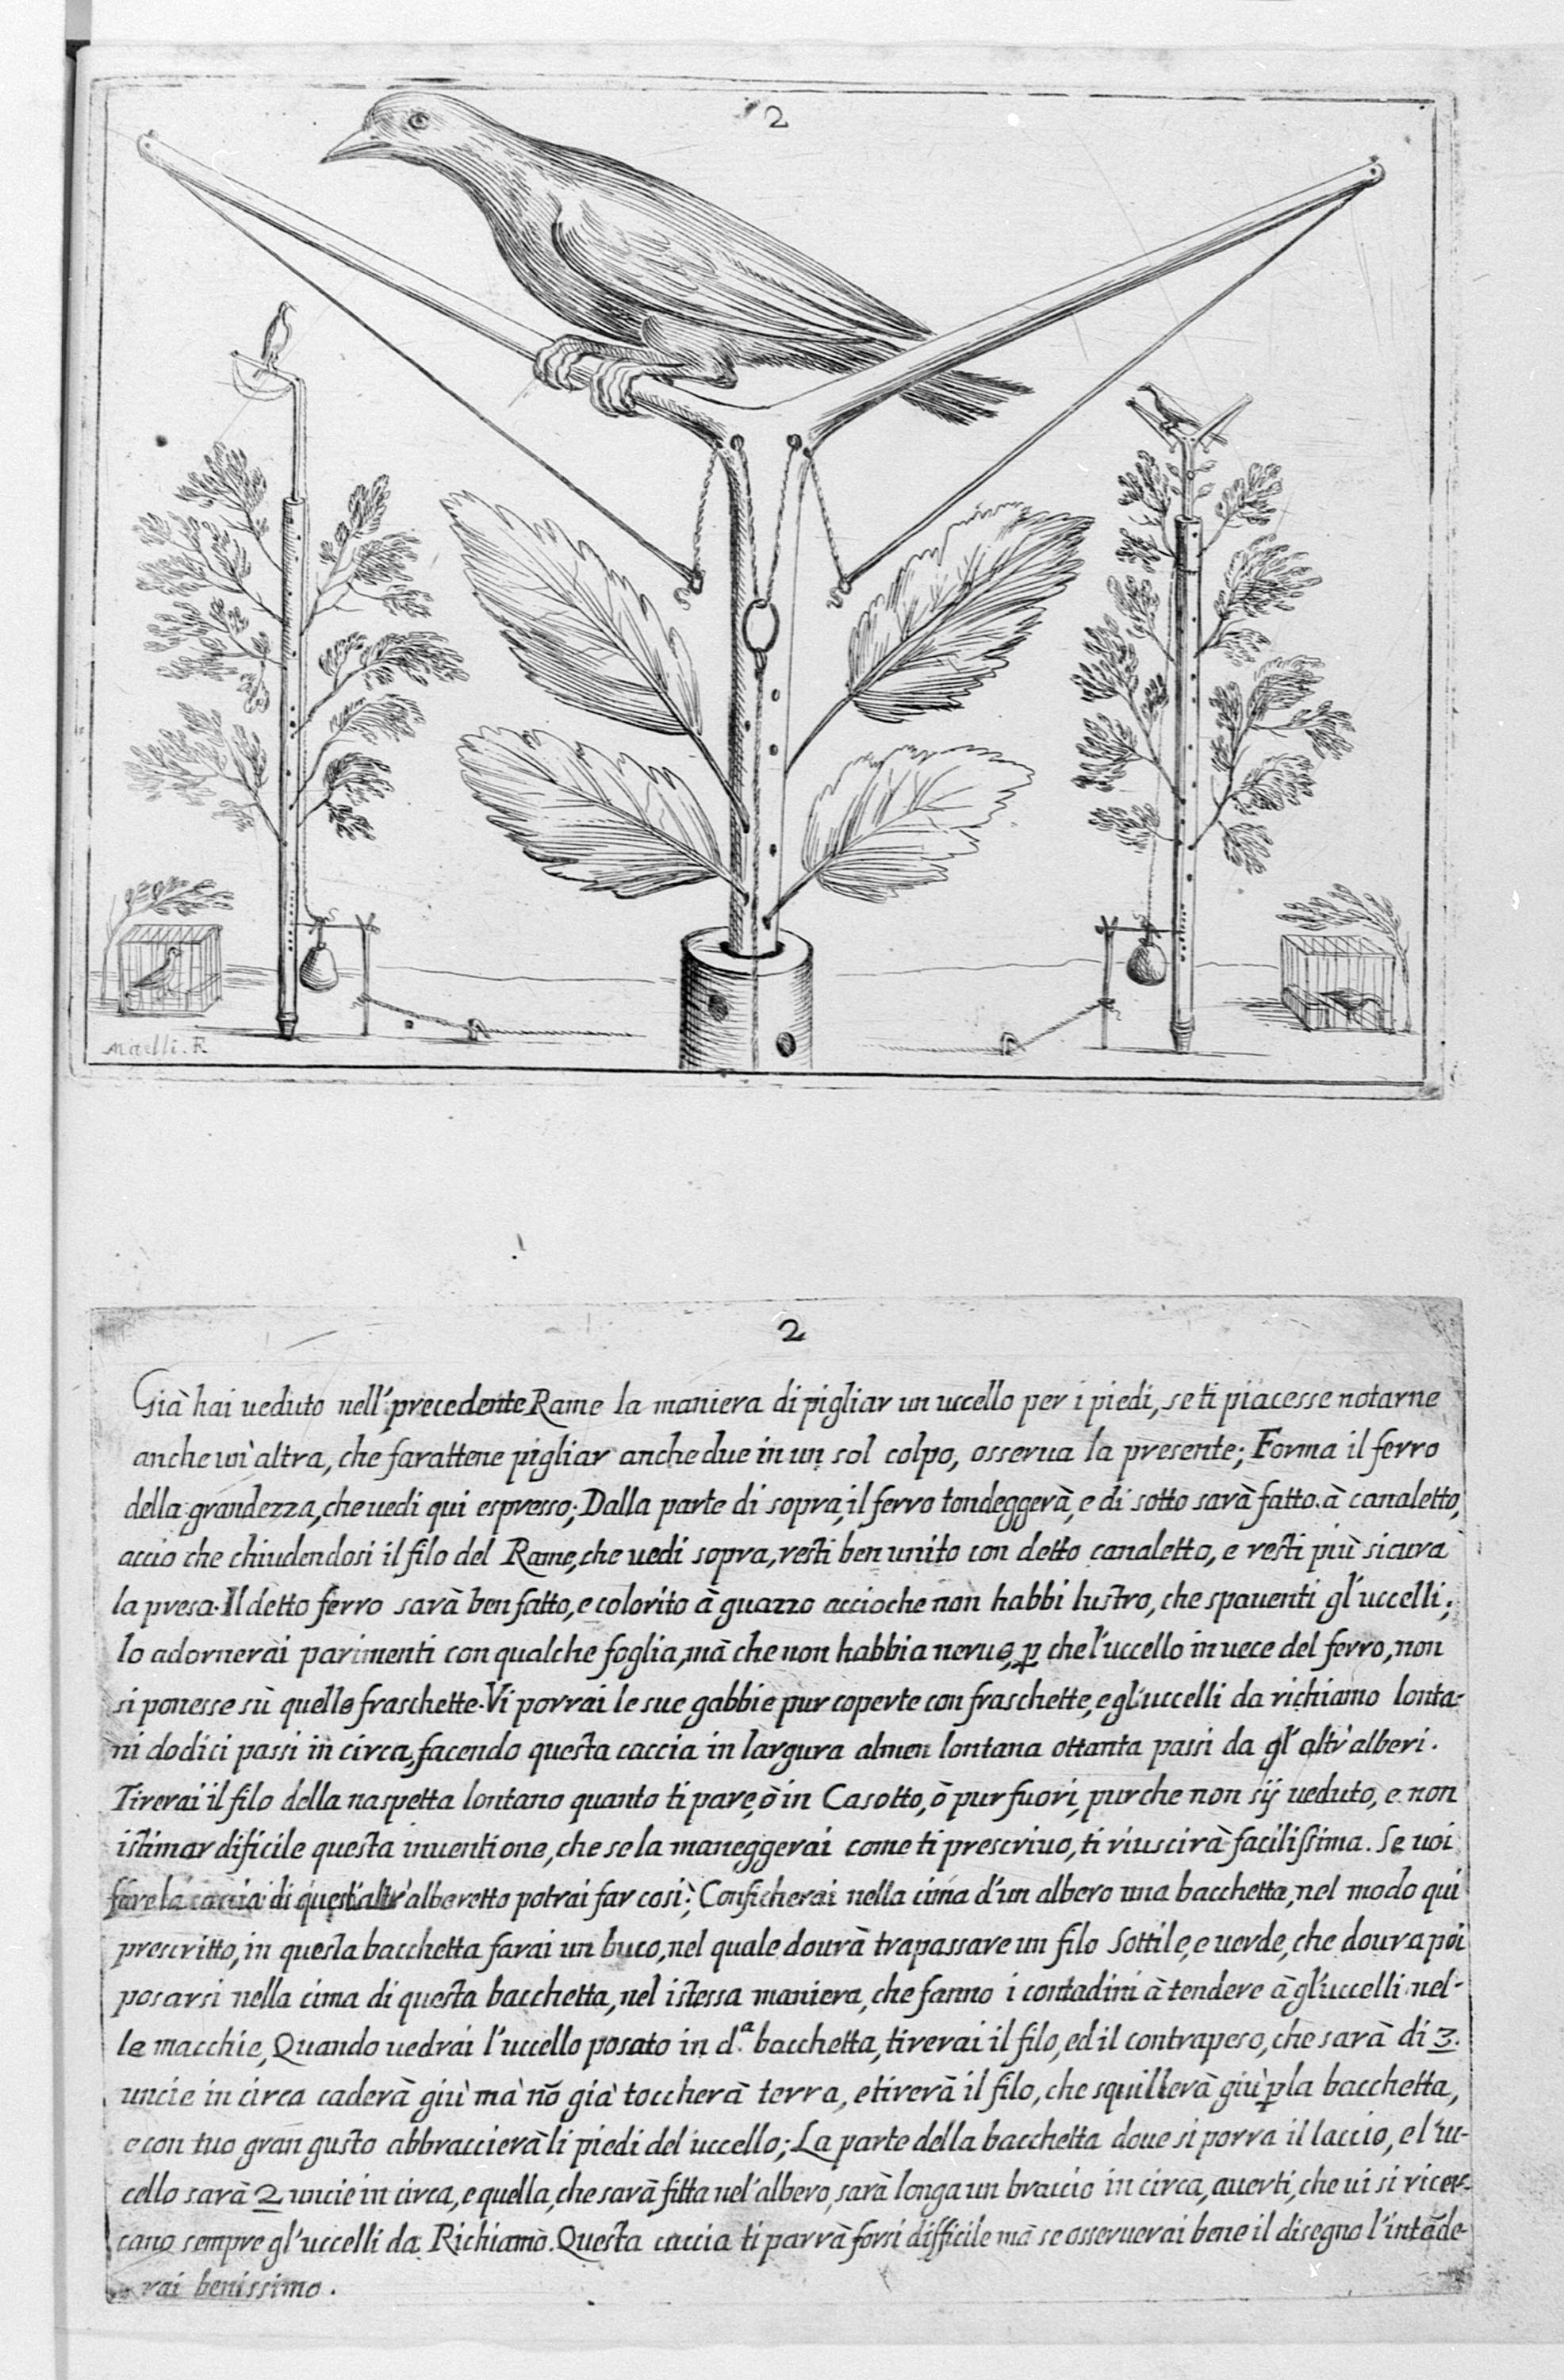 2
Maelli. R
2
Già hai ueduto nell'precedente Rame la maniera di pigliar un uccello per i piedi, se ti piacesse notarne
anche un'altra, che farattene pigliar anche due in un sol colpo, osserua la presente; Forma il ferro
della grandezza, che uedi qui espresso; Dalla parte di sopra, il ferro tondeggerà, e di sotto sarà fatto à canaletto,
accio che chiudendosi il filo del Rame, che uedi sopra, resti ben unito con detto canaletto, e resti più sicura
la presa. Il detto ferro sarà ben fatto, e colorito à guazzo accioche non habbi lustro, che spauenti gl'uccelli;
lo adornerai parimenti con qualche foglia, mà che non habbia neruo, p che l'uccello in uece del ferro, non
si ponesse sù quelle fraschette. Vi porrai le sue gabbie pur coperte con fraschette, e gl'uccelli da richiamo lonta-
ni dodici passi in circa, facendo questa caccia in largura almen lontana ottanta passi da gl'altr'alberi.
Tirerai il filo della naspetta lontano quanto ti pare, ò in Casotto, ò pur fuori, purche non sij ueduto, e non
istimar dificile questa inuentione, che se la maneggerai come ti prescriuo, ti riuscirà facilissima. Se uoi
fare la caccia di quest'altr'alberetto potrai far cosi; Conficherai nella cima d'un albero una bacchetta, nel modo qui
prescritto, in questa bacchetta farai un buco, nel quale dourà trapassare un filo Sottile, e uerde, che doura poi
posarsi nella cima di questa bacchetta, nel istessa maniera, che fanno i contadini à tendere à gl'uccelli nel-
le macchie, Quando uedrai l'uccello posato in d.ª bacchetta, tirerai il filo, ed il contrapeso, che sarà di 3.
uncie in circa caderà giu' mà nõ già toccherà terra, e tirerà il filo, che squillerà giu' p la bacchetta,
e con tuo gran gusto abbraccierà li piedi del uccello; La parte della bacchetta doue si porra il laccio, e l'uc-
cello sarà 2 uncie in circa, e quella, che sarà fitta nel'albero, sarà longa un braccio in circa, auerti, che ui si ricer-
cano sempre gl'uccelli da Richiamo. Questa caccia ti parrà forsi difficile mà se osseruerai bene il disegno l'intẽde-
rai benissimo.